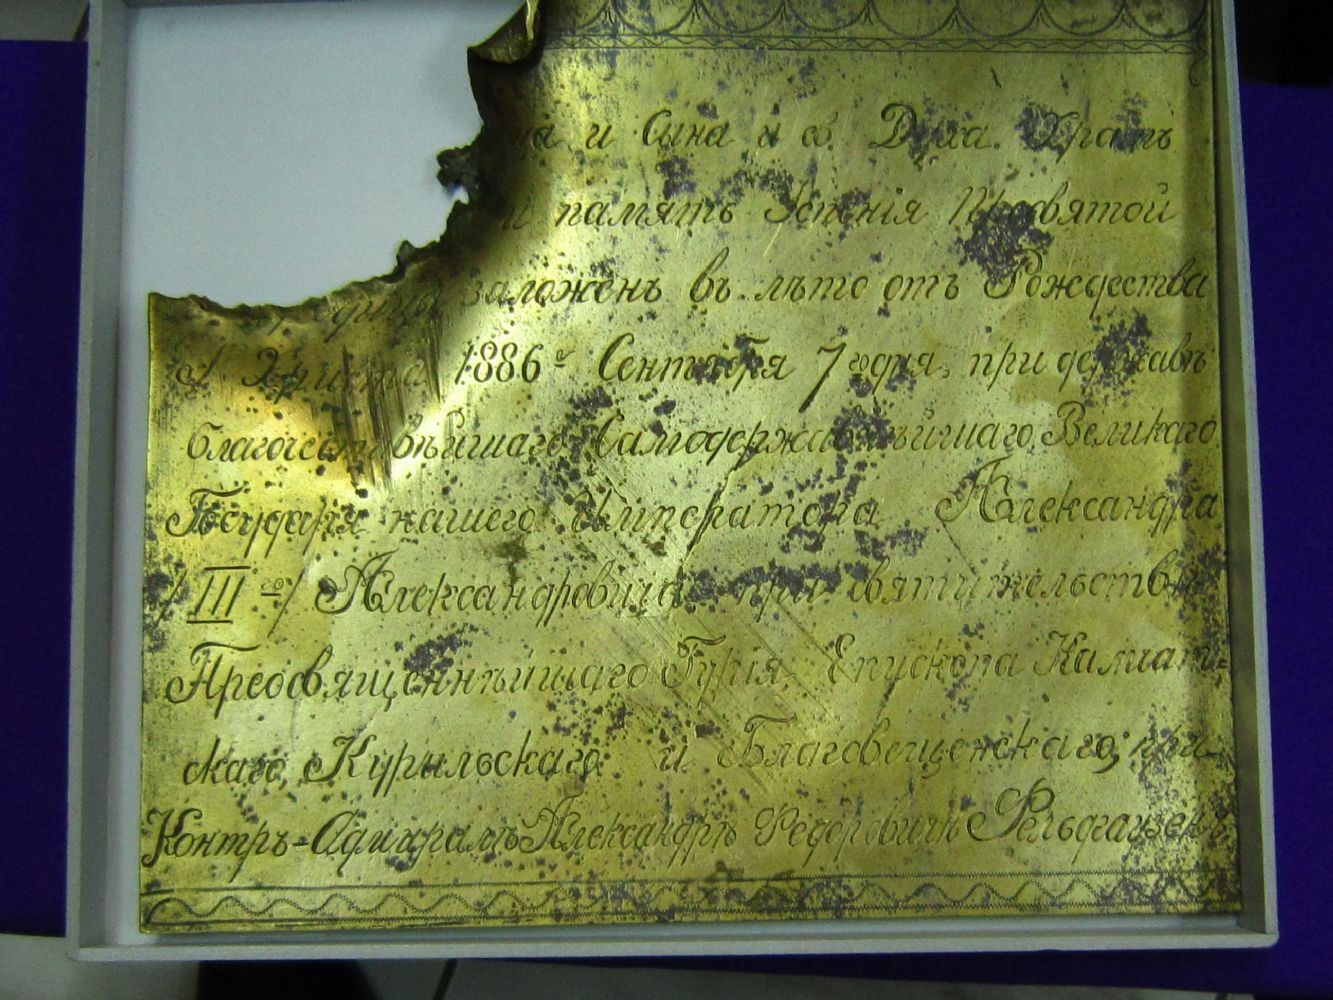 ца и Сына и св. Духа. Храмъ
память Успенія Пресвятой
заложенъ въ лѣто отъ Рождества
Христа 1886 г Сентября 7го дня, при державѣ
благочестивѣйшаго Самодержавнѣйшаго Великаго
Государя нашего Императора Александра
/III го/ Александровича при святительствѣ
Преосвященнѣйшаго Гурія Епископа Камчат=
скаго, Курильскаго и Благовещенскаго, при
Контръ-Адмиралѣ Александрѣ Федоровичѣ Фельдгаузенѣ